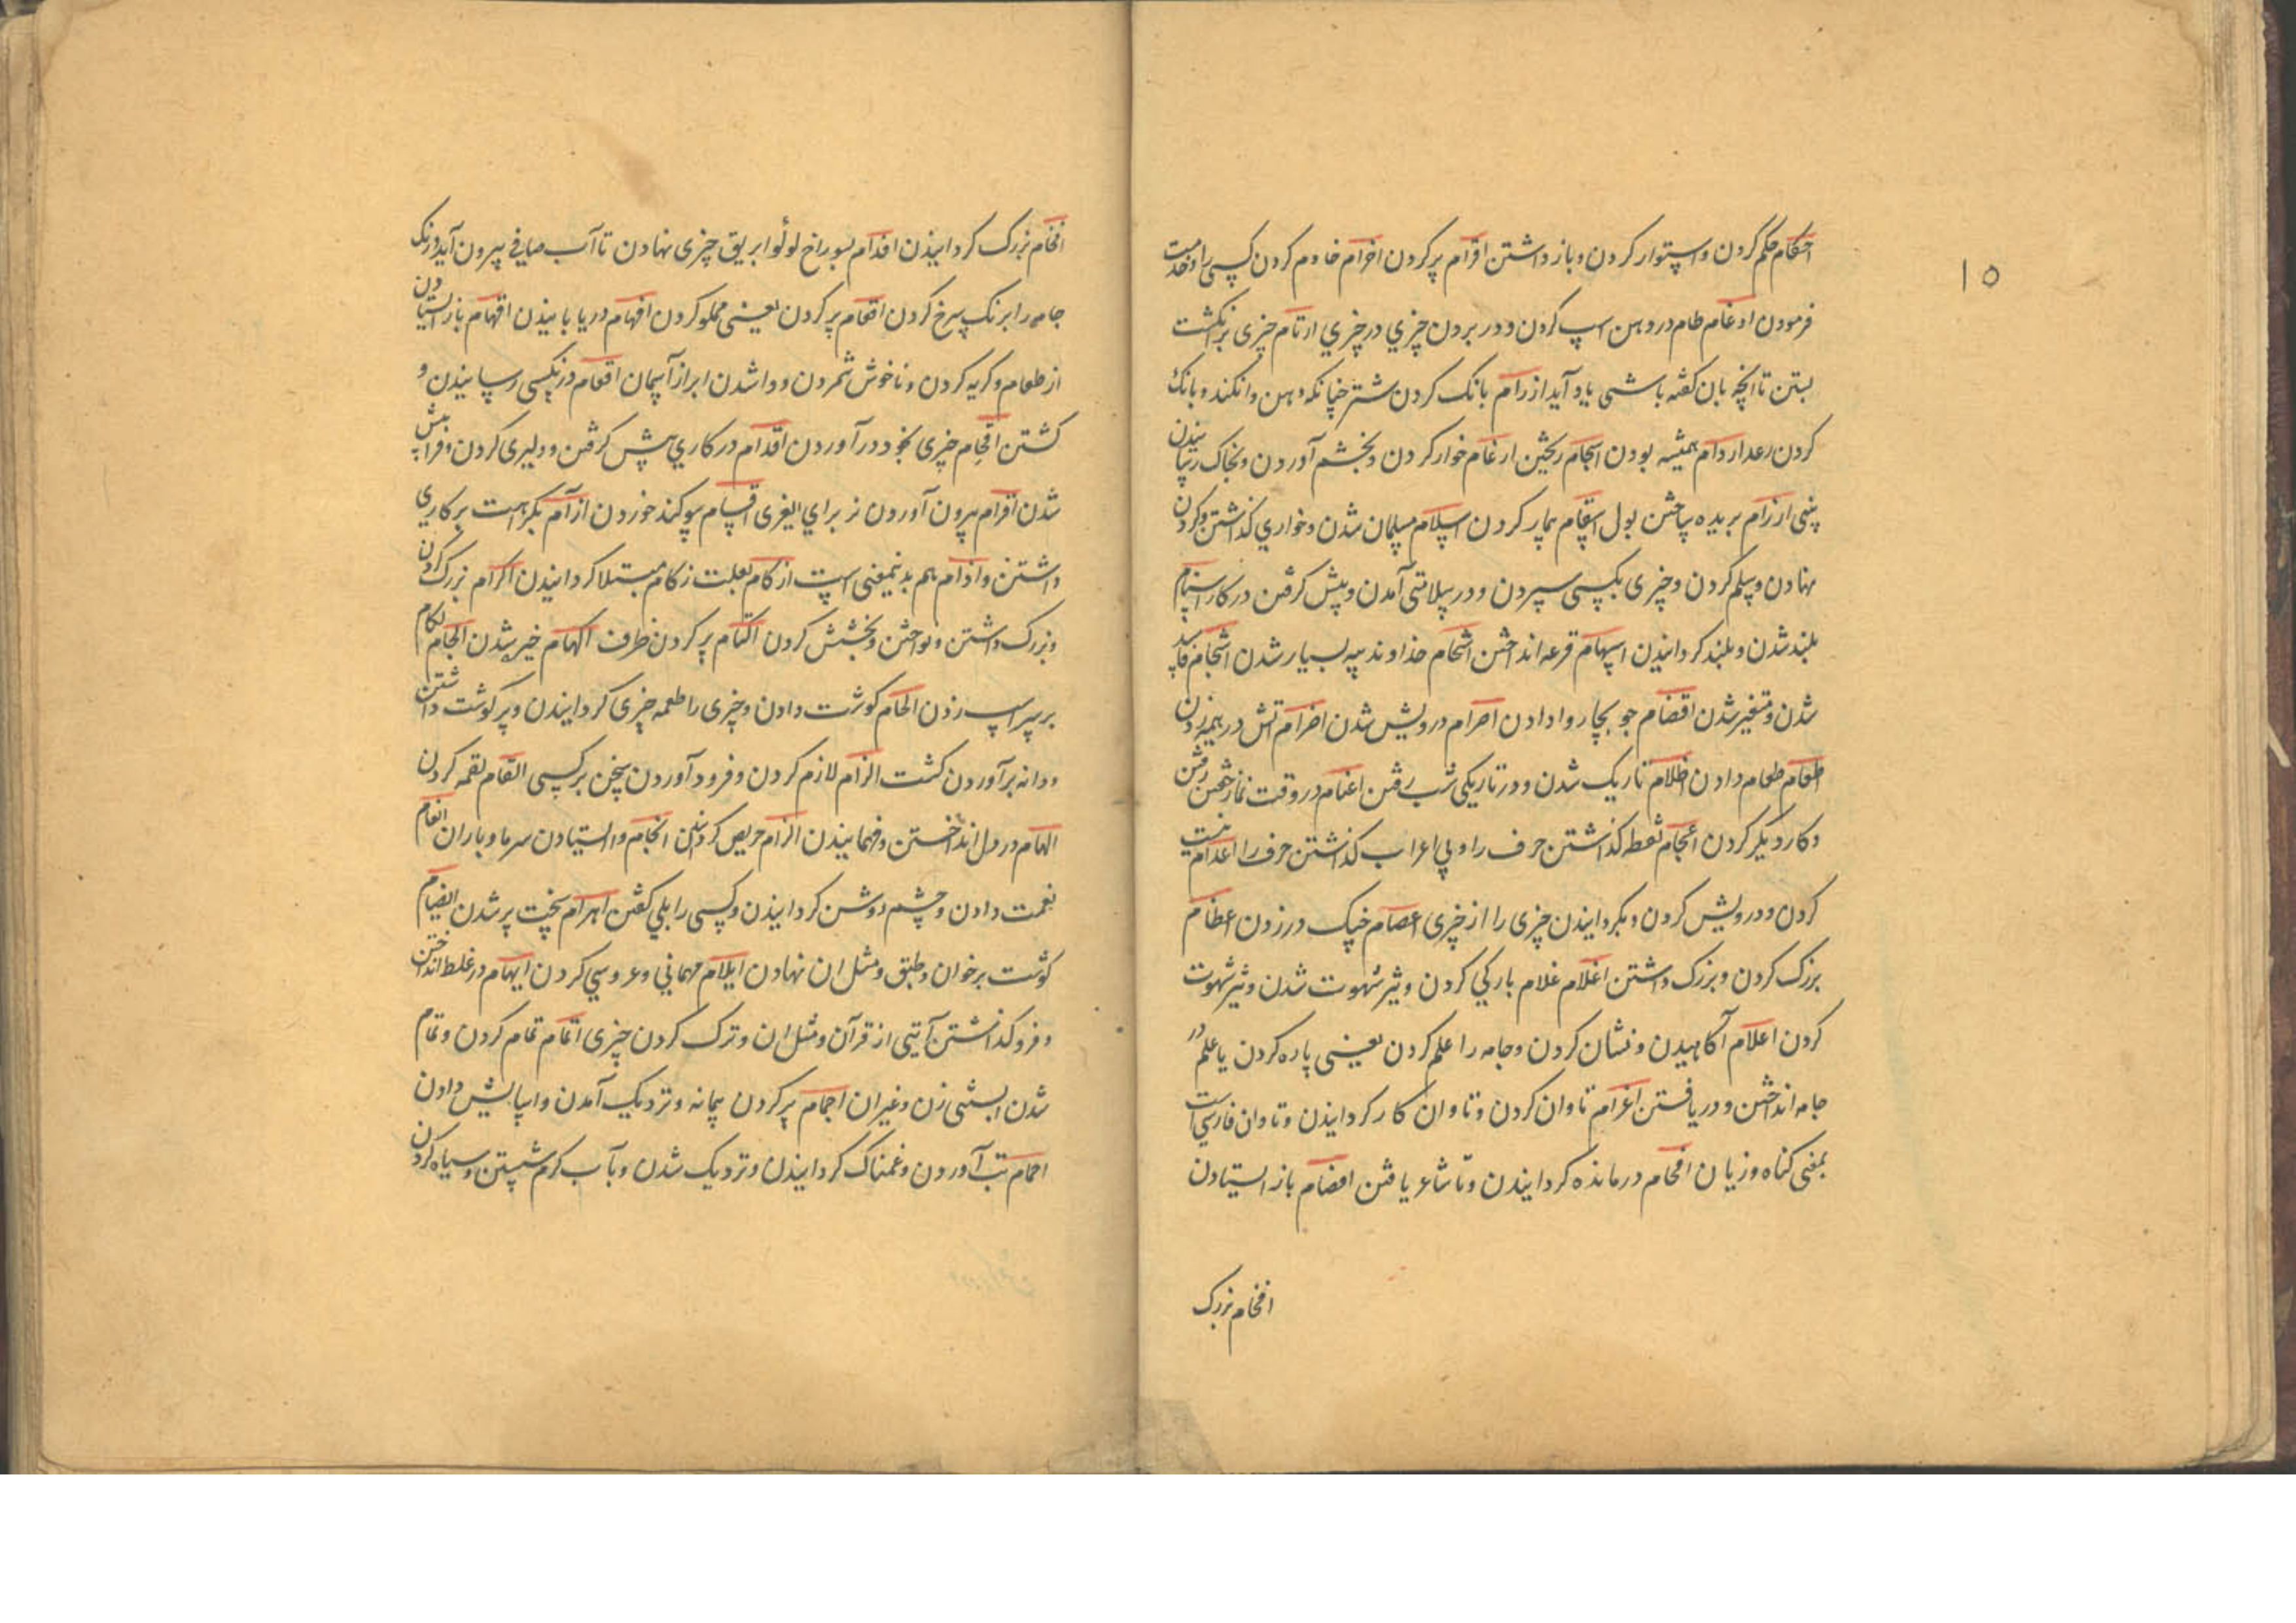 ۱۵
احکام حکم کردن و استوار کردن و باز داشتن اقرام پر کردن اخرام خادم کردن کسی را و خدمت
فرمودن ادغام طام در دهن اسپ کردن و در بردن چیزی در چیزی ارتام چیزی بر انکشت
بستن تا انچه بان کفته باشی یاد آید ارزام بانک کردن شتر چنانکه دهن وا نکند و بانک
کردن رعد اردام همیشه بودن اسجام ریختن ارغام خوار کردن و بخشم آوردن و بخاک رسانیدن
بینی ازرام بریده ساختن بول اسقام بیمار کردن اسلام مسلمان شدن و خواری کذاشتن و کردن
نهادن و سلم کردن و چیزی بکسی سپردن و در سلامتی آمدن و پیش کرفتن در کار اسنام
بلند شدن و بلند کردانیدن اسهام قرعه انداختن اشحام خداوند پیه بسیار شدن اشخام فاسد
شدن و متغیر شدن اقضام جو بچاروا دادن اصرام درویش شدن اضرام آتش در هیمه زدن
طعام طعام دادن اظلام تاریک شدن و در تاریکی شب رفتن اعتام در وقت نماز خفتن رفتن
و کار دیکر کردن اعجام نقطه کذاشتن حرف را و بی اعراب کذاشتن حرف را اعدام نیست
کردن و درویش کردن و بکردانیدن چیزی را از چیزی اعصام چنک در زدن اعظام
بزرک کردن و بزرک داشتن اغلام غلام بارکی کردن و تیز شهوت شدن و تیز شهوت
کردن اعلام آکاهیدن و نشان کردن و جامه را علم کردن یعنی پاره کردن یا علم در
جامه انداختن و دریافتن اغرام تاوان کردن و تاوان کار کردانیدن و تاوان فارسی است
بمعنی کناه و زیان افحام درمانده کردانیدن و تا شاعر یافتن افصام باز ایستادن
افخام بزرک
افخام بزرک کردانیدن افدام بسوراخ لوله ابریق چیزی نهادن تا آب صافی بیرون آید و رنک
جامه را برنک سرخ کردن افعام پر کردن یعنی مملو کردن افهام دریابانیدن اقهام باز ایستادن
از طعام و کریه کردن و ناخوش شمردن و وا شدن ابر از آسمان اقعام در نکسی رسانیدن و
کشتن اقحام چیزی بخود در آوردن اقدام در کاری پیش کرفتن و دلیری کردن و فرا پیش
شدن اقرام بیرون آوردن نر برای الیغری اقسام سوکند خوردن ازآم بکراهت بر کاری
داشتن و اذام هم بدینمعنی است ازکام بعلت زکام مبتلا کردانیدن اکرام بزرک کردن
و بزرک داشتن و نواختن و بخشش کردن اکتام پر کردن ظرف اکهام خیر شدن الجام لکام
بر سر اسپ زدن الحام کوشت دادن و چیزی را طعمه چیزی کردانیدن و پر کوشت داشتن
و دانه بر آوردن کشت الزام لازم کردن و فرود آوردن سخن بر کسی القام لقمه کردن
الهام در دل انداختن و فهمانیدن الزام حریص کردانیدن انجام وا ایستادن سرما و باران انعام
نعمت دادن و چشم روشن کردانیدن و کسی را بلی کفتن اهرام سخت پیر شدن ایضام
کوشت بر خوان و طبق و مثل ان نهادن ایلام مهمانی و عروسی کردن ایهام در غلط انداختن
و فرو کذاشتن آیتی از قرآن و مثل ان و ترک کردن چیزی اتمام تمام کردن و تمام
شدن ابستنی زن و غیر ان اجمام پر کردن پیمانه و نزدیک آمدن و اسایش دادن
احمام تب آوردن و غمناک کردانیدن و نزدیک شدن و بآب کرم شستن و سیاه کردن